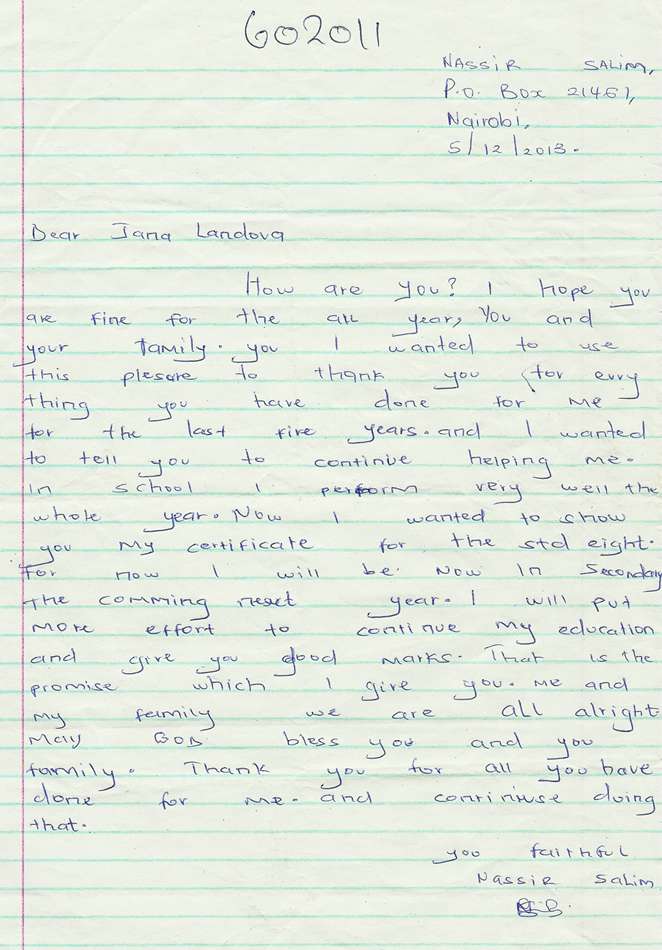 GO2011
NASSIR SALIM,
P.O. BOX 21461,
Nairobi,
5/12/2013.
Dear Jana Landova
How are you? I hope you
are fine for the all year, You and
your family. you I wanted to use
this plesare to thank you for evry
thing you have done for me
for the last five years. and I wanted
to tell you to continue helping me.
In school I perform very well the
whole year. Now I wanted to show
you my certificate for the std eight.
for now I will be. Now in Secondary
The comming next year. I will put
more effort to continue my education
and give you good marks. That is the
promise which I give you. Me and
my family we are all alright
May GOD bless you and you
family. Thank you for all you have
done for me. and continuse doing
that.
you faithful
NASSIR SALIM